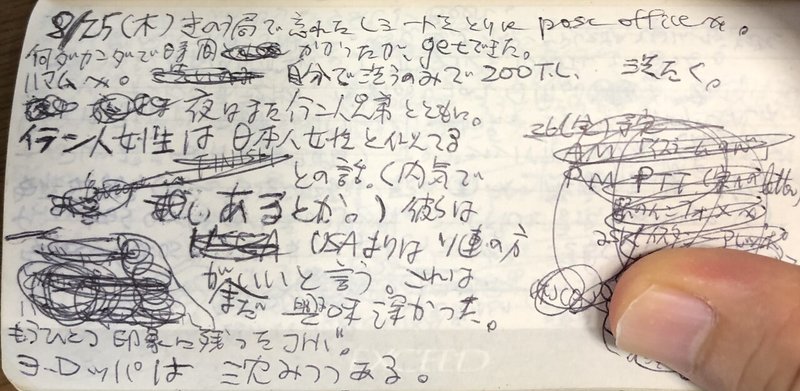 8/25(木) きのう局で忘れたレシートをとりに post officeへ。
何ダカンダで時間 かかったが、getできた。
ハマムへ。 自分で洗うのみで200T.L. 洗たく。
夜はまたイラン人兄弟とともに。
イラン人女性は日本人女性と似てる
FINISH
との話。(内気で
あるとか。) 彼らは
USAよりはソ連の方
がいいと言う。これは
まだ 興味深かった。
もうひとつ印象に残ったコトバ。
ヨーロッパは 沈みつつある。
26(金)予定
AM
PM PTT